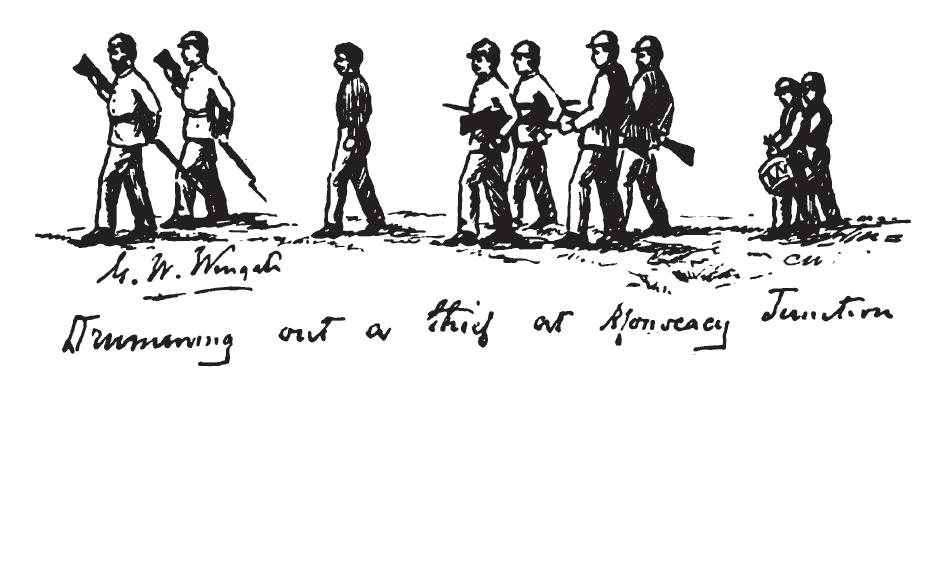 G. W. Wingate
Drumming out a thief at Monocacy Junction